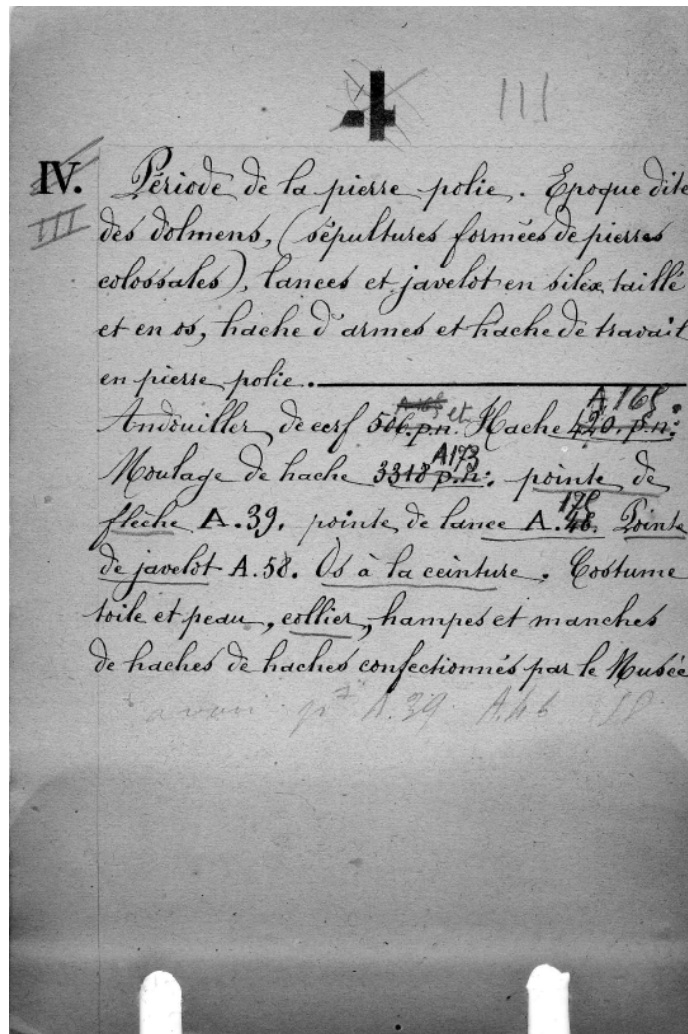 4 III
IV. Période de la pierre polie. Epoque dite
III des dolmens, (sépultures formées de pierres
colossales), lances et javelot en silex taillé
et en os, hache d'armes et hache de travail
en pierre polie.
A 168
Andouiller de cerf 506 p.n. et Hache 420. p.n:
A173
Moulage de hache 3318 p.n: pointe de
178
flèche A.39. pointe de lance A.46. Pointe
de javelot A.58. Os à la ceinture. Costume
toile et peau, collier, hampes et manches
de haches de haches confectionnés par le Musée
A.39 A.46